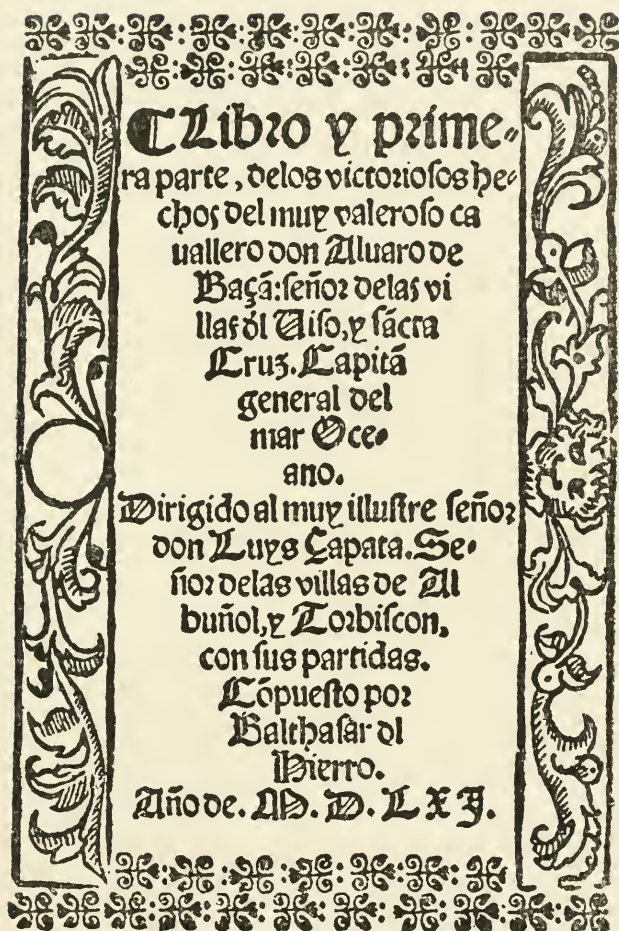 ¶ Libro y prime-
ra parte, delos victoriosos he-
chos del muy valeroso ca
uallero don Aluaro de
Baçã: señor delas vi
llas ðl Uiso, y sãcta
Cruz. Capitã
general del
mar Oce-
ano.
Dirigido al muy illustre señor
don Luys Çapata. Se-
ñor delas villas de Al
buñol, y Torbiscon,
con sus partidas.
Cõpuesto por
Balthasar ðl
Hierro.
Año de. M. D. LXJ.